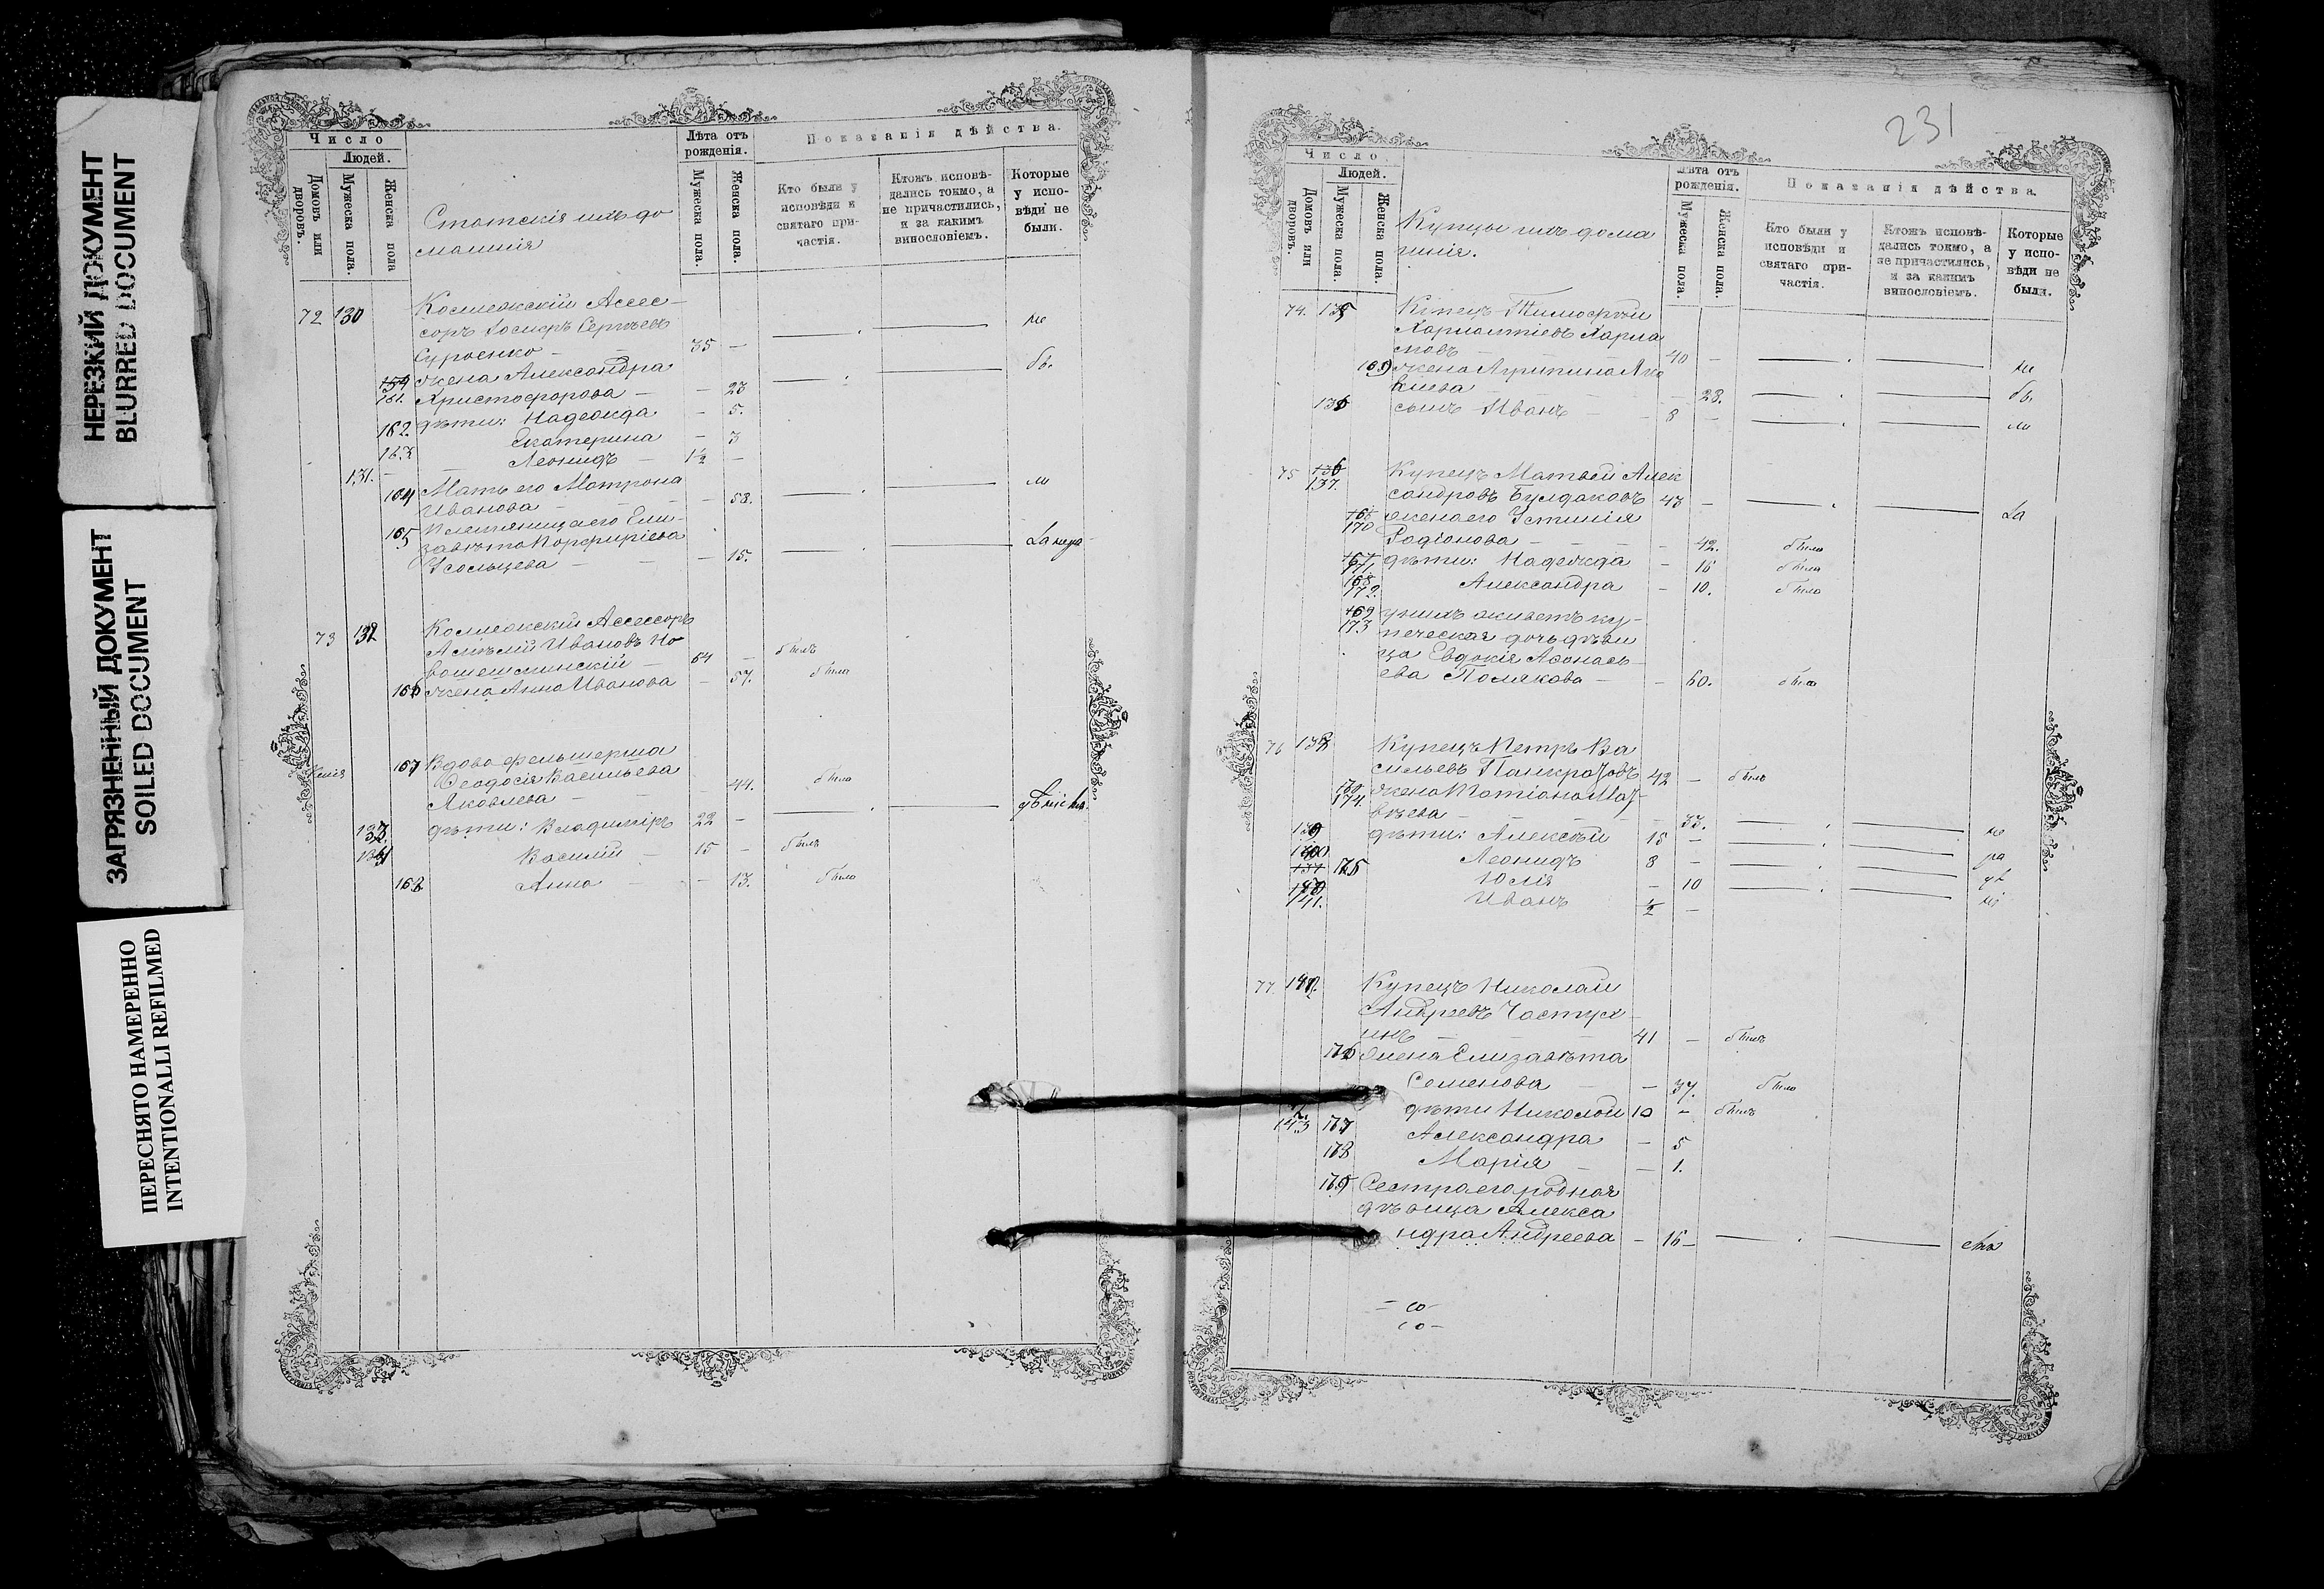 НЕРЕЗКИЙ ДОКУМЕНТ
BLURRED DOCUMENT
ЗАГРЯЗНЕННЫЙ ДОКУМЕНТ
SOILED DOCUMENT
ПЕРЕСНЯТО НАМЕРЕННО
INTENTIONALLI REFILMED
Число
Людей.
Домовъ или дворовъ.
Мужеска пола.
Женска пола
Статскія ихъ до
машнія
Лѣта отъ рожденія.
Мужеска пола.
Женска пола.
Показанія дѣйства.
Кто были у исповѣди и святаго причастія.
Ктожъ исповѣдались токмо, а не причастились, и за какимъ винословіемъ.
Которые у исповѣди не были.
72 130 Коллежскій Ассес-
соръ Сергѣевъ
35 — не
жена Александра
161. Христофорова — — 23 бы.
162. дѣти: Надежда — 5.
163 Екатерина — 3
131. Леонидъ — 1½ —
164 Мать его Матрона
Иванова — — 58. ли
165 Племянница его Ели-
завѣта Порфиріева
Усольцева — — 15.
73 132 Коллежскій Ассессоръ
Ивановъ Но
вошешминскій — 64 — былъ
166 жена Анна Иванова — 57. была
167 Вдова фельшерша
Феодосія Васильева
Яковлева — — 44. была
133. дѣти: Владиміръ 22 —
134 Василій — 15 — былъ
168 Анна — — 13. была
231
Число
Людей.
Домовъ или дворовъ.
Мужеска пола
Женска пола.
Купцы ихъ дома
шнія.
Лѣта отъ рожденія.
Мужеска пола.
Женска пола.
Показанія дѣйства.
Кто были у исповѣди и святаго причастія.
Ктожъ исповѣдались токмо, а не причастились, и за какимъ винословіемъ.
Которые у исповѣди не были.
74. 135 Купецъ Тимофѣй
Харлампіевъ Харла
мовъ 40 — не
169 жена Агрипина Ака
кіева — 28. бы.
136 сынъ Иванъ — 8 — ли
75 137. Купецъ Матвѣй Алек
сандровъ Булдаковъ 43 —
170 жена его Устинія
Родіонова — — 42. была
171. дѣти: Надежда — 16 была
172. Александра — 10. была
173 у нихъ живетъ ку-
печеская дочь дѣви
ца Евдокія Афонась-
ева Полякова — — 60. была
76 138 Купецъ Петръ Ва
сильевъ Панкратовъ 42 — былъ
174. жена Татіана Мат-
вѣева — 33. не
139 дѣти: Алексѣй 15 — ра
140 Леонидъ 8 —
175 Юлія — 10
141. Иванъ ½ —
77. 142. Купецъ Николай
Андреевъ Частух
инъ — 41 — былъ
176 жена Елизавѣта
Семенова — 37. была
143 дѣти Николай 10 — былъ
177 Александра — 5
178 Марія — — 1.
179 Сестра его родная
дѣвица Алекса
ндра Андреева — 16 —